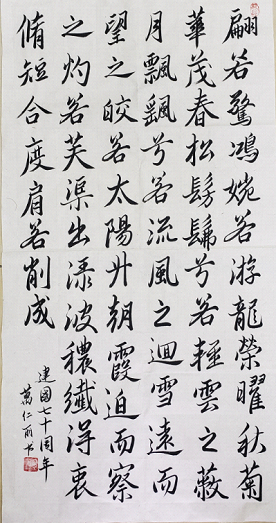 翩若驚鴻婉若游龍榮曜秋菊
華茂春松髣髴兮若輕雲之蔽
月飄飄兮若流風之迴雪遠而
望之皎若太陽升朝霞迫而察
之灼若芙渠出渌波穠纖得衷
脩短合度肩若削成
建國七十周年
萬仁丽书